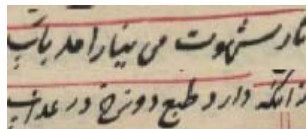 نار شهوت می نیارامد بآب
زانکه دارد طبع دوزخ در عذاب